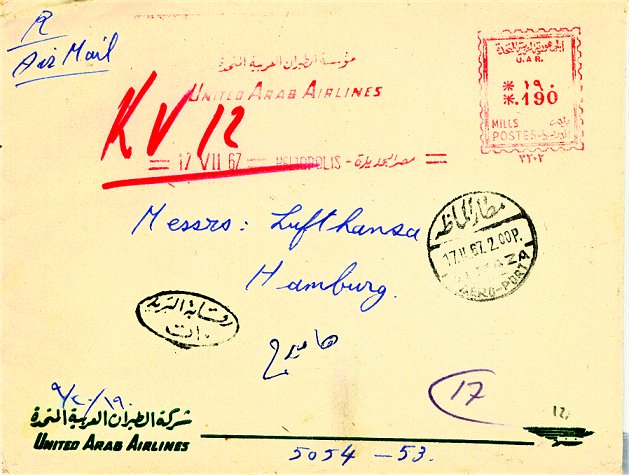 R
Air Mail
مؤسسة الطيران العربية المتحدة
UNITED ARAB AIRLINES
الجمهورية العربية المتحدة
U.A.R.
١٩٠
.190
MILLS
POSTES
٧٢٠٢
KV 12
17 VII 67 HELIOPOLIS - مصر الجديدة
Messrs: Lufthansa
Hamburg.
هامبورج
مطار الماظه
17.II.67.2.00P.
ALMAZA
AERO-PORT
رقابة البريد
17
12
شركة الطيران العربية المتحدة
UNITED ARAB AIRLINES
5054 - 53.